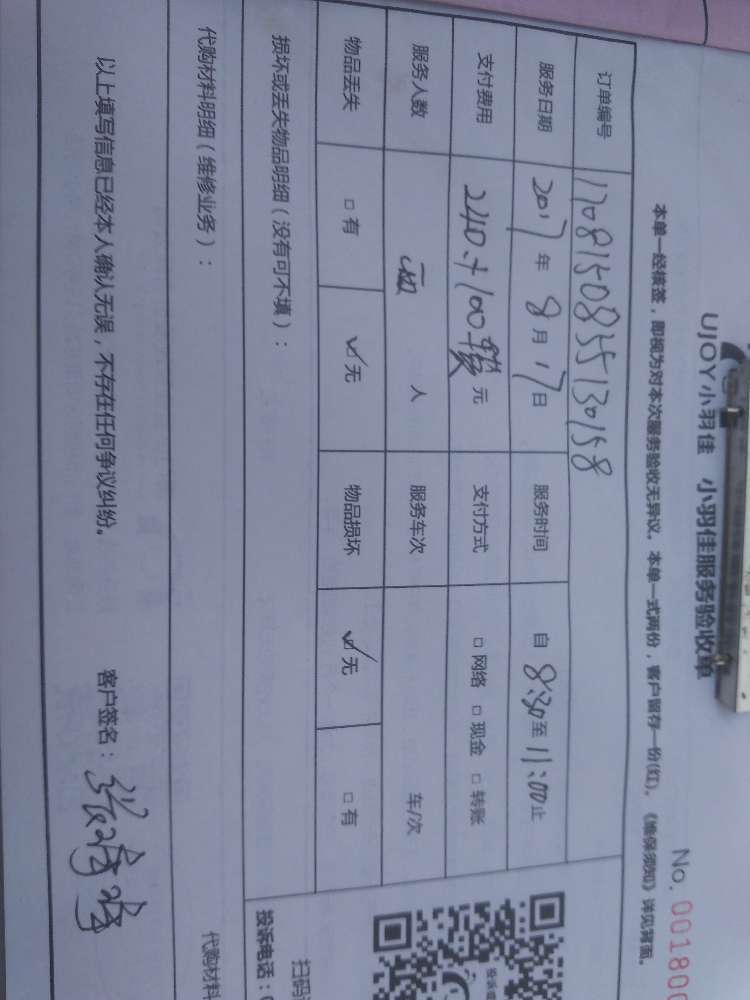 UJOY小羽佳 小羽佳服务验收单
No. 001800
本单一经核签，即视为对本次服务验收无异议。本单一式两份，客户留存一份(红)。《维保须知》详见背面。
订单编号 17081508355130158
服务日期 2017年8月17日 服务时间 自8:30至11:00止
支付费用 240+100 元 支付方式 □网络 □现金 □转账
服务人数 人 服务车次 车/次
物品丢失 □有 ☑无 物品损坏 ☑无 □有
损坏或丢失物品明细（没有可不填）：
投诉电话：
代购材料明细（维修业务）：
代购材料
以上填写信息已经本人确认无误，不存在任何争议纠纷。 客户签名：